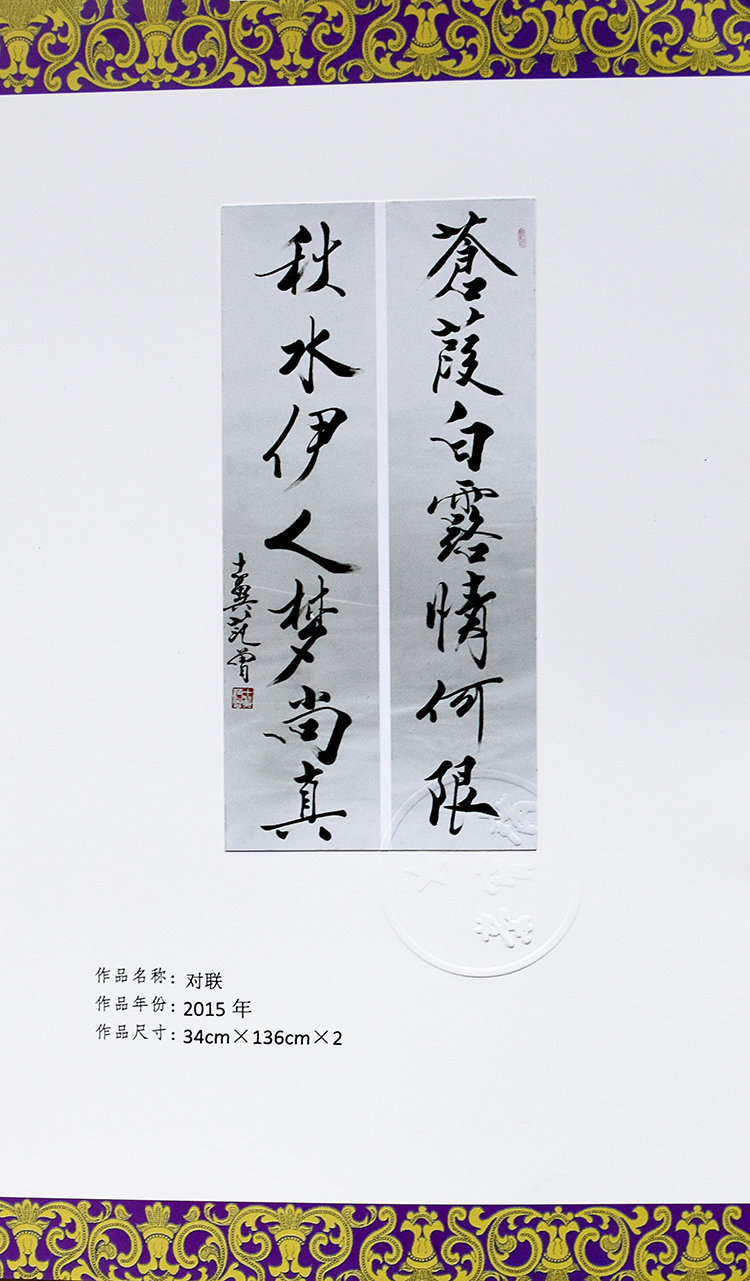 蒼葭白露情何限
秋水伊人梦尚真
十翼范曾
作品名称：对联
作品年份：2015 年
作品尺寸：34cm×136cm×2